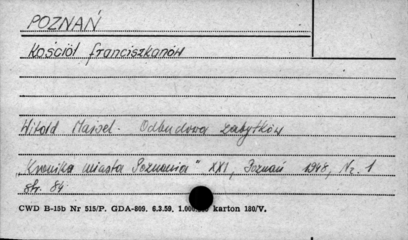 POZNAŃ
Kościół franciszkanów
Witold Maisel. Odbudowa zabytków
"Kronika miasta Poznania" XXI, Poznań 1948, Nr. 1
str. 84.
CWD B-15b Nr 515/P. GDA-809. 6.3.59. karton 180/V.